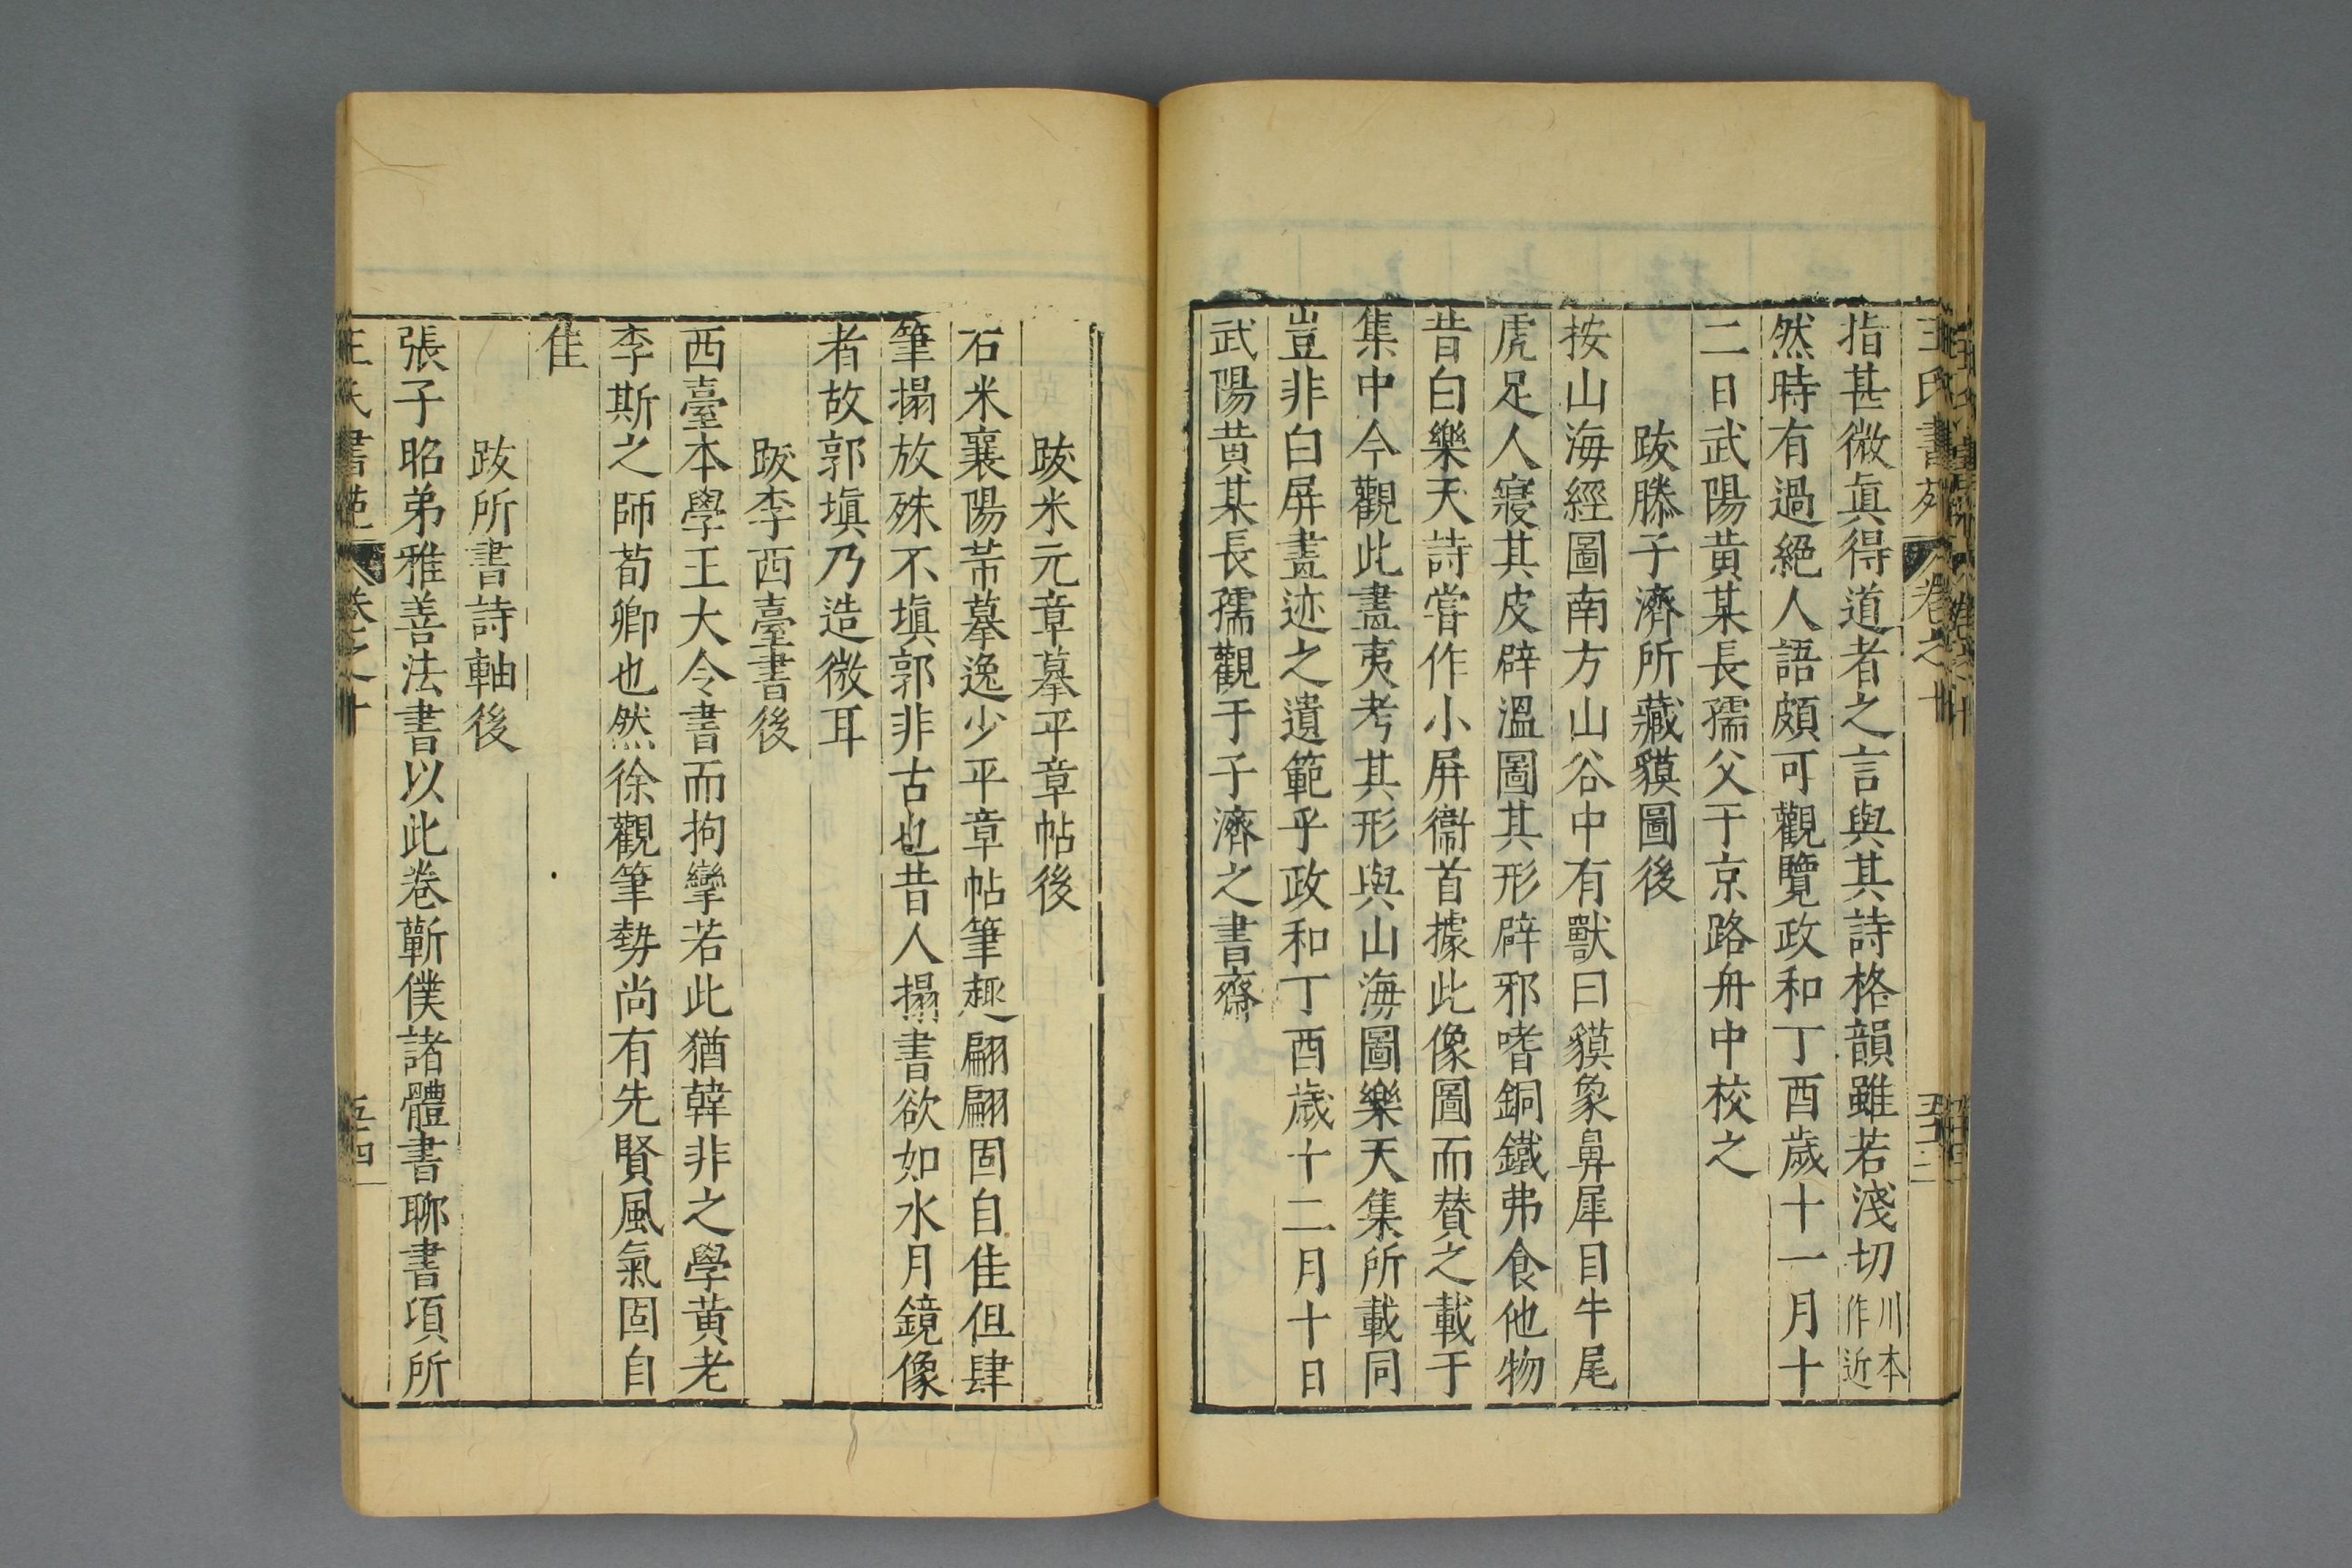 王氏書苑 卷之十
指甚微眞得道者之言與其詩格韻雖若淺切川本作近
然時有過絕人語頗可觀覽政和丁酉歲十一月十
二日武陽黃某長孺父于京路舟中校之
跋滕子濟所藏貘圖後
按山海經圖南方山谷中有獸曰貘象鼻犀目牛尾
虎足人寢其皮辟溫圖其形辟邪嗜銅鐵弗食他物
昔白樂天詩嘗作小屏衞首據此像圖而賛之載于
集中今觀此畫夷考其形與山海圖樂天集所載同
豈非白屏畫迹之遺範乎政和丁酉歲十二月十日
武陽黃某長孺觀于子濟之書齋
跋米元章摹平章帖後
石米襄陽芾摹逸少平章帖筆趣翩翩固自佳但肆
筆搨放殊不塡郭非古也昔人搨書欲如水月鏡像
者故郭塡乃造微耳
跋李西臺書後
西臺本學王大令書而拘攣若此猶韓非之學黃老
李斯之師荀卿也然徐觀筆勢尚有先賢風氣固自
佳
跋所書詩軸後
張子昭弟雅善法書以此卷蘄僕諸體書聊書項所
王氏書苑 卷之十 五四